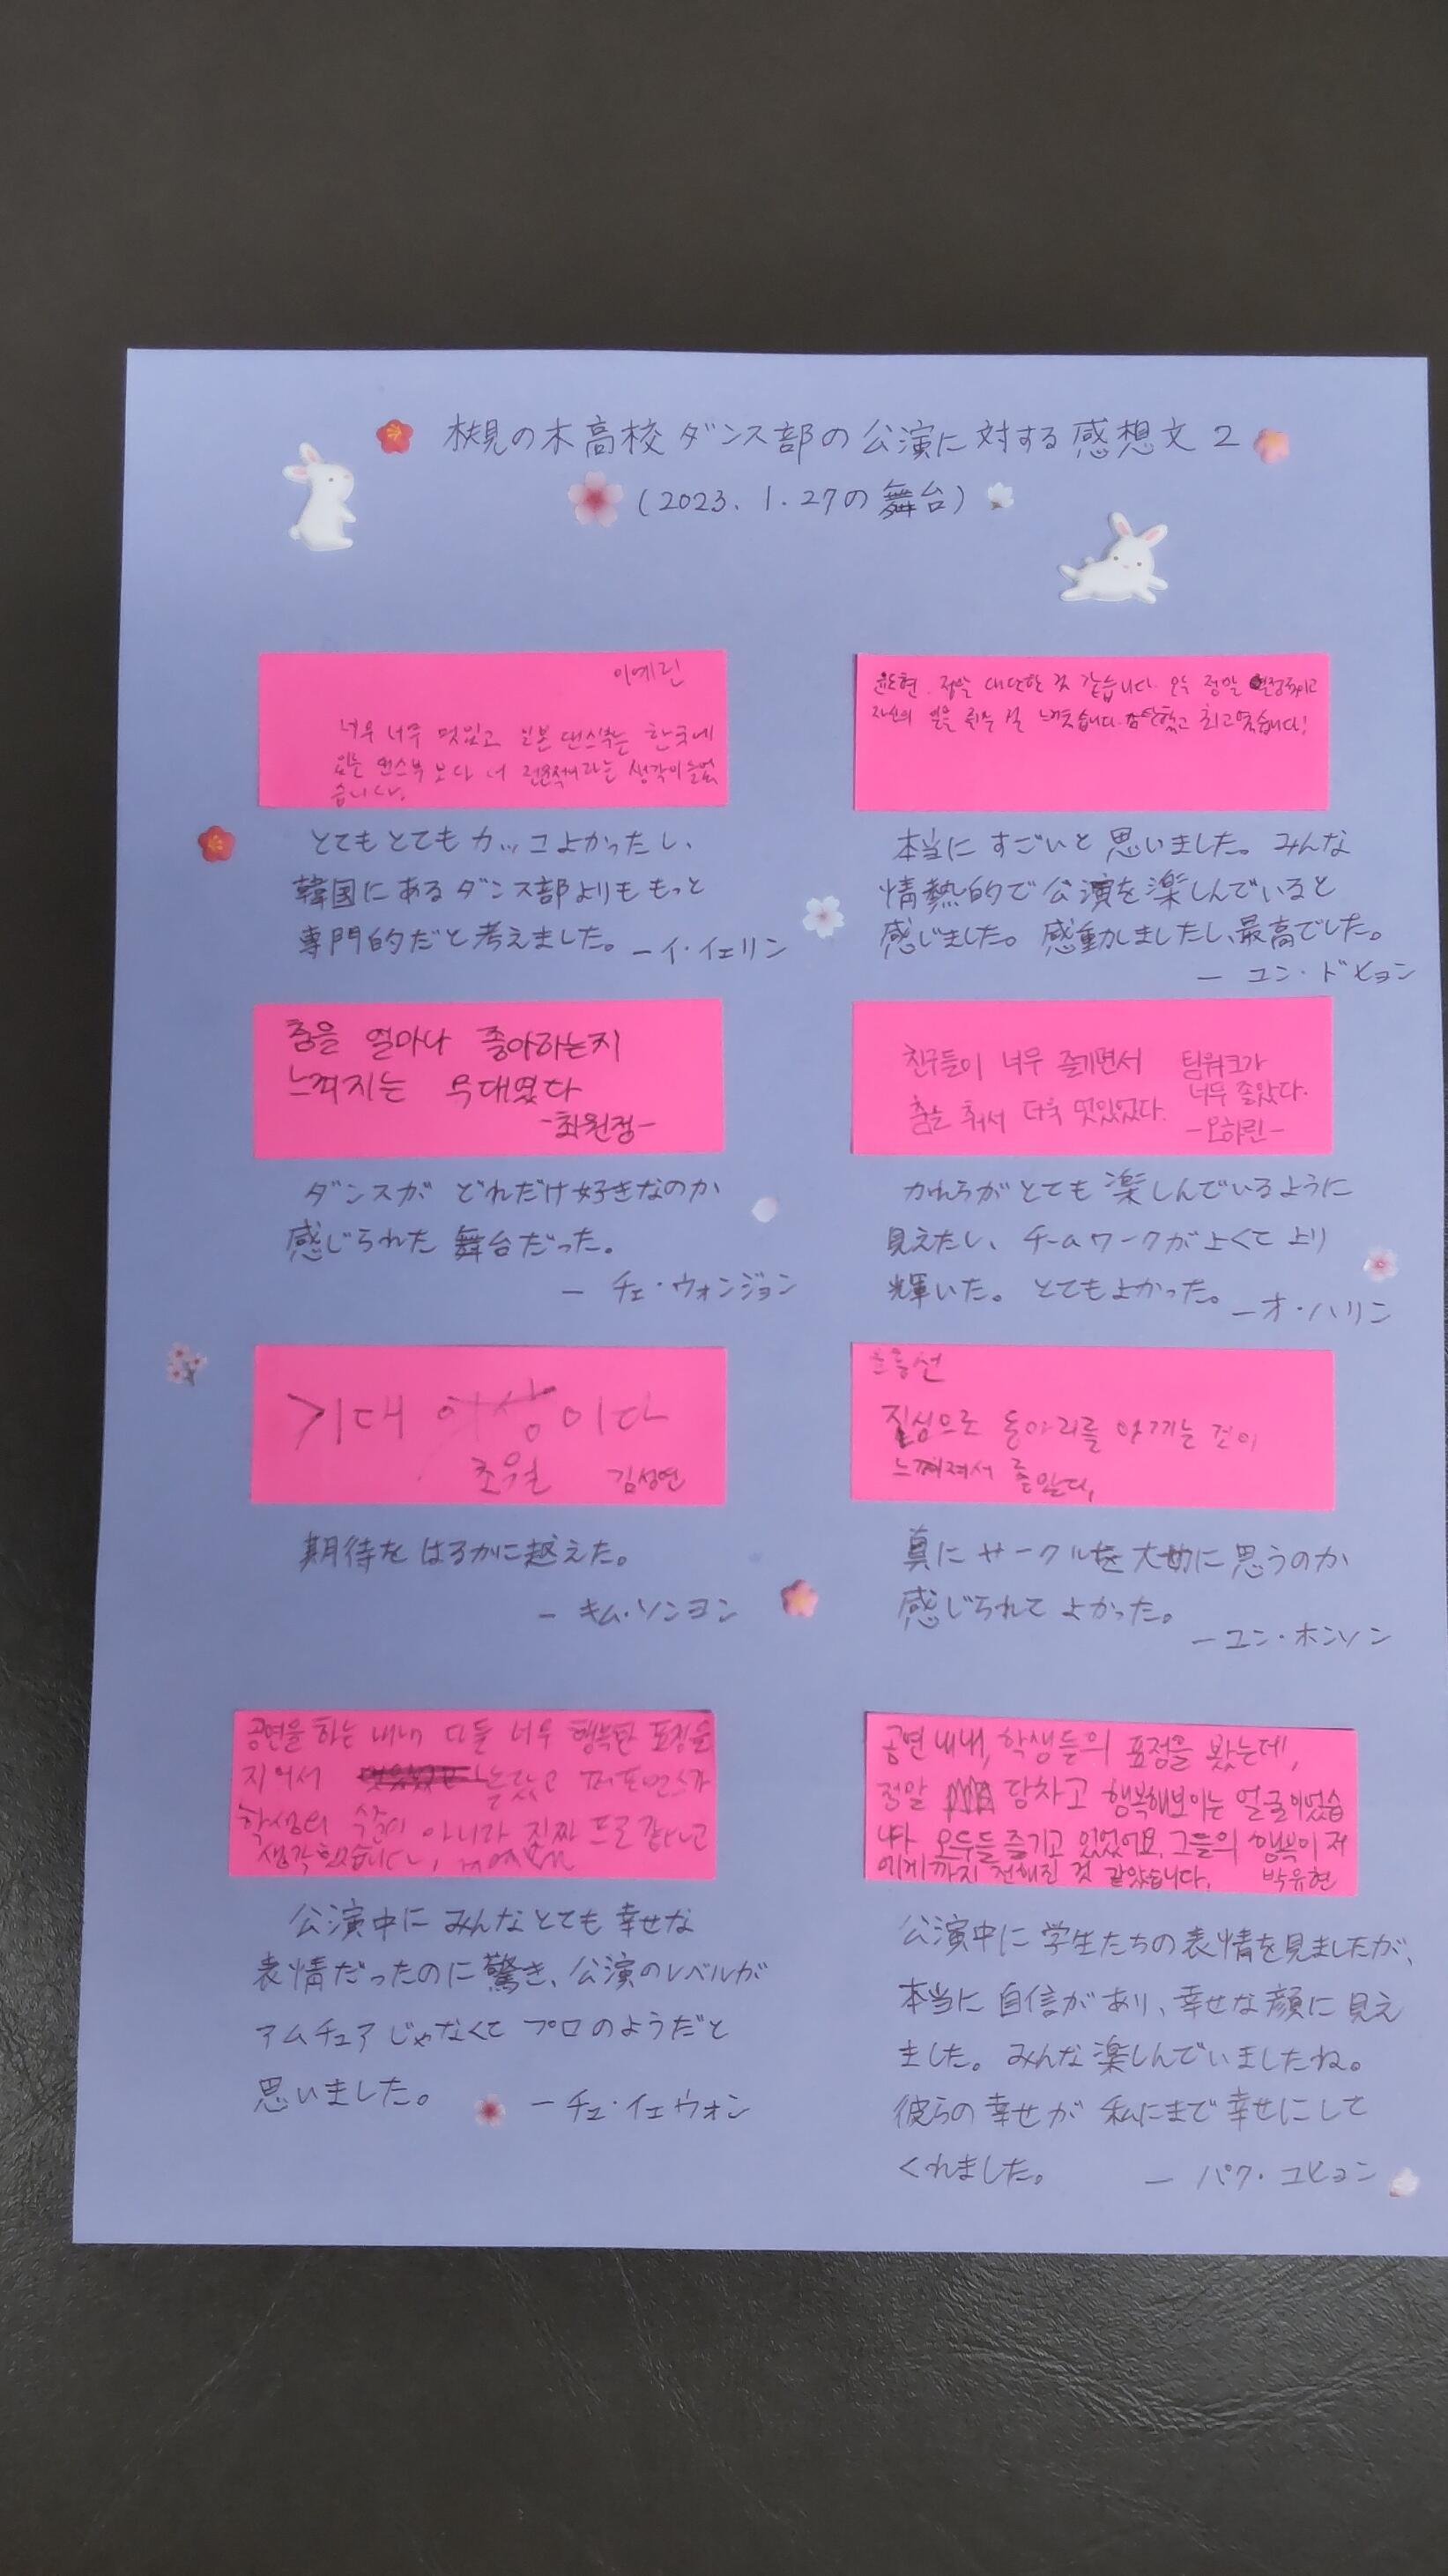 槻の木高校ダンス部の公演に対する感想文2
(2023.1.27の舞台)
이예린
너무 너무 멋있고 일본 댄스부는 한국에
있는 댄스부 보다 더 전문적이라는 생각이 들었
습니다.
とてもとてもカッコよかったし、
韓国にあるダンス部よりももっと
専門的だと考えました。 ーイ・イェリン
윤도현. 정말 대단한 것 같습니다. 오늘 정말 열정적이고
느꼈습니다. 감탄했고 최고였습니다!
本当にすごいと思いました。みんな
情熱的で公演を楽しんでいると
感じました。感動しましたし、最高でした。
ー ユン・ドヒョン
춤을 얼마나 좋아하는지
느껴지는 무대였다
-최원정-
ダンスがどれだけ好きなのか
感じられた舞台だった。
ー チェ・ウォンジョン
친구들이 너무 즐기면서
춤을 춰서 더욱 멋있었다.
팀워크가
너무 좋았다.
-오하린-
かれらがとても楽しんでいるように
見えたし、チームワークがよくてより
輝いた。とてもよかった。 ーオ・ハリン
기대 이상이다
초월 김성연
期待をはるかに越えた。
ー キム・ソンヨン
진심으로 동아리를 아끼는 것이
느껴져서 좋았다.
真にサークルを大切に思うのか
感じられてよかった。
ーユン・ホンソン
공연을 하는 내내 다들 너무 행복한 표정을
지어서 놀랐고 퍼포먼스가
학생의 수준이 아니라 진짜 프로 같다고
생각했습니다.
公演中にみんなとても幸せな
表情だったのに驚き、公演のレベルが
アムチュアじゃなくてプロのようだと
思いました。 ーチェ・イェウォン
공연 내내, 학생들의 표정을 봤는데,
정말 당차고 행복해보이는 얼굴이었습
니다. 모두들 즐기고 있었어요. 그들의 행복이 저
에게까지 전해진 것 같았습니다. 박유현
公演中に学生たちの表情を見ましたが、
本当に自信があり、幸せな顔に見え
ました。みんな楽しんでいましたね。
彼らの幸せが私にまで幸せにして
くれました。 ー パク・ユヒョン